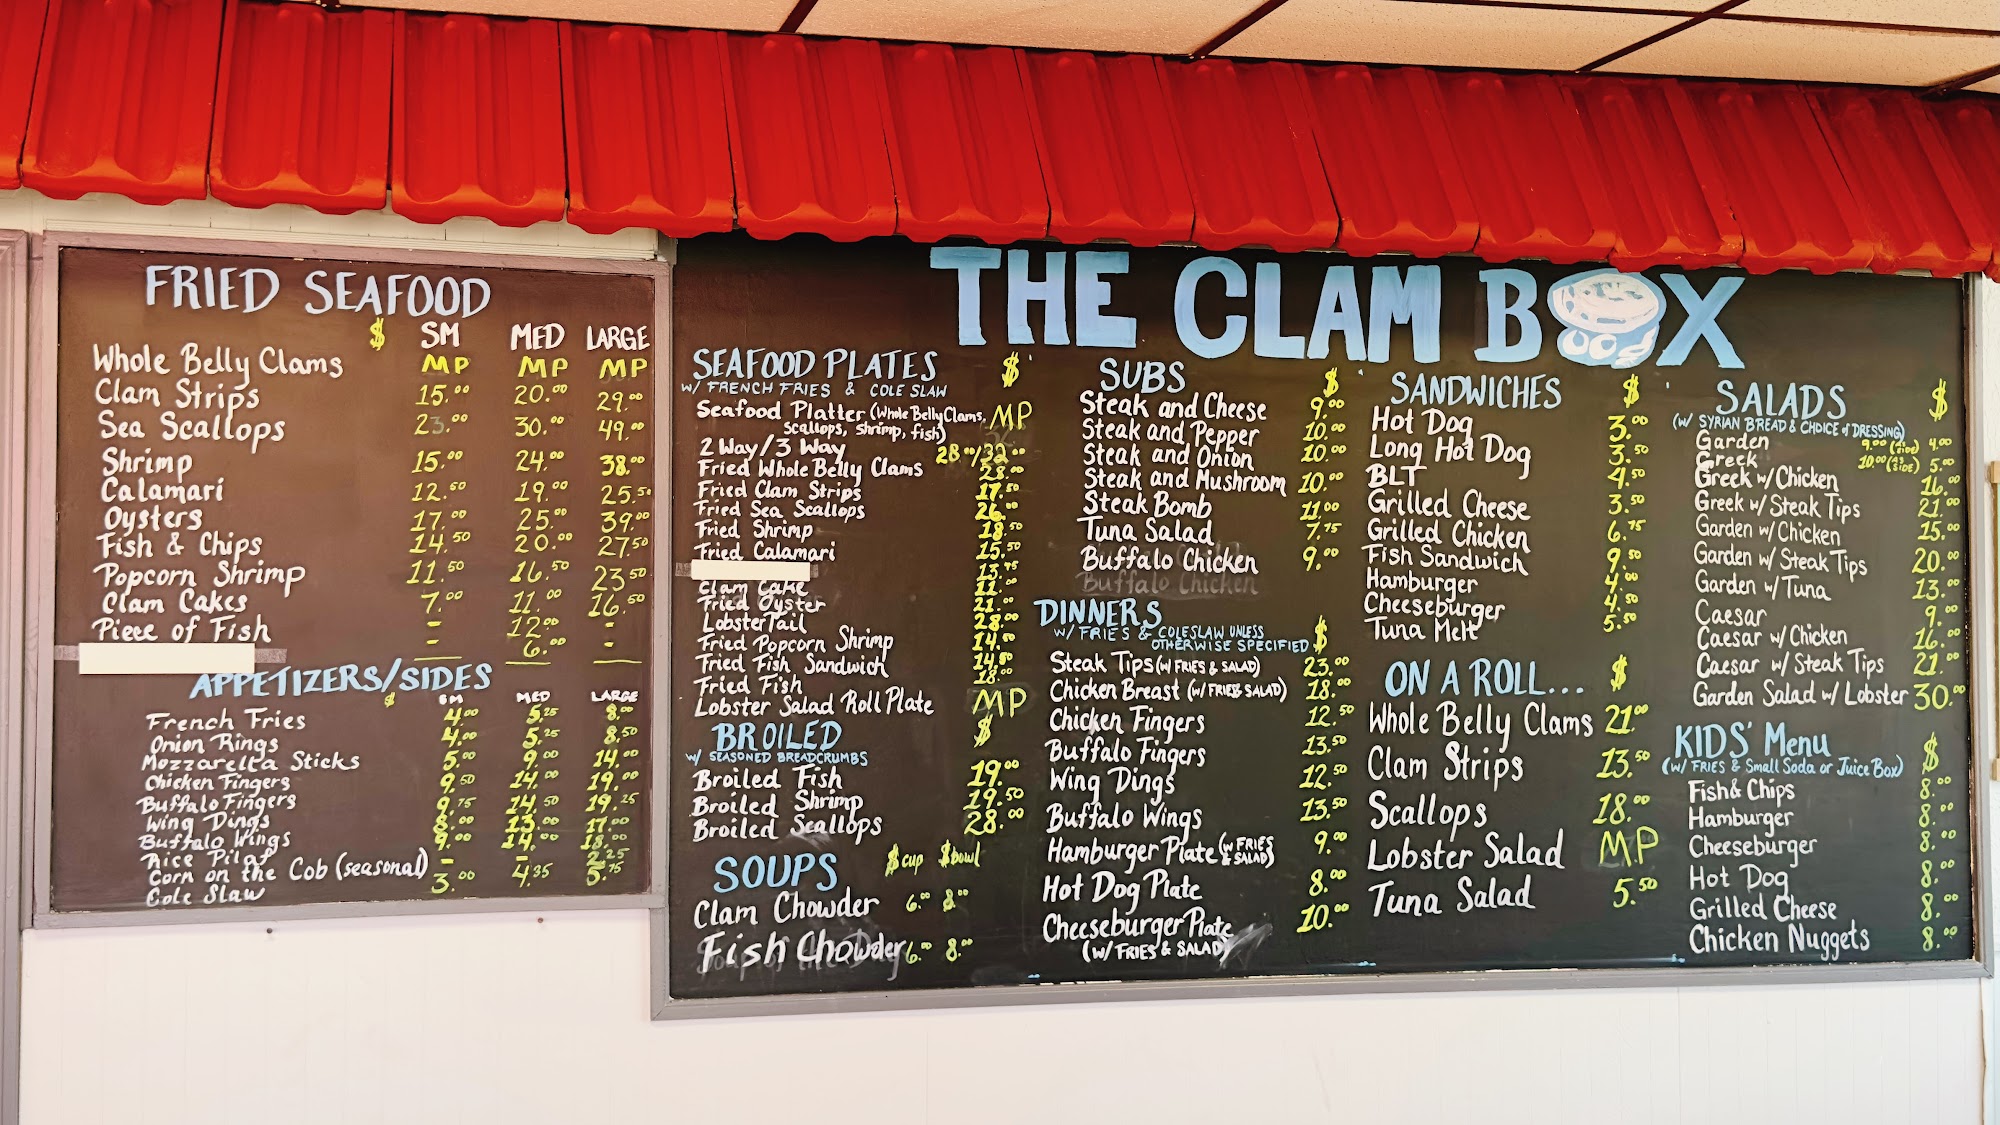 THE CLAM BOX
FRIED SEAFOOD
$ SM MED LARGE
Whole Belly Clams MP MP MP
Clam Strips 15.00 20.00 29.00
Sea Scallops 23.00 30.00 49.00
Shrimp 15.00 24.00 38.00
Calamari 12.50 19.00 25.50
Oysters 17.00 25.00 39.00
Fish & Chips 14.50 20.00 27.50
Popcorn Shrimp 11.50 16.50 23.50
Clam Cakes 7.00 11.00 16.50
Piece of Fish - 12.00 -
- 6.00 -
APPETIZERS/SIDES
$ SM MED LARGE
French Fries 4.00 5.25 8.00
Onion Rings 4.00 5.25 8.50
Mozzarella Sticks 5.00 9.00 14.00
Chicken Fingers 9.50 14.00 19.00
Buffalo Fingers 9.75 14.50 19.25
Wing Dings 8.00 13.00 17.00
Buffalo Wings 9.00 14.00 18.00
Rice Pilaf - - 2.25
Corn on the Cob (seasonal) 3.00 4.35 5.75
Cole Slaw
SEAFOOD PLATES $
w/ FRENCH FRIES & COLE SLAW
Seafood Platter (Whole Belly Clams, MP
scallops, shrimp, fish)
2 Way/3 Way 28.00/32.00
Fried Whole Belly Clams 28.00
Fried Clam Strips 17.50
Fried Sea Scallops 26.00
Fried Shrimp 18.50
Fried Calamari 15.50
13.75
Clam Cake 11.00
Fried Oyster 21.00
Lobster Tail 28.00
Fried Popcorn Shrimp 14.50
Fried Fish Sandwich 14.50
Fried Fish 18.00
Lobster Salad Roll Plate MP
BROILED $
w/ SEASONED BREADCRUMBS
Broiled Fish 19.00
Broiled Shrimp 19.50
Broiled Scallops 28.00
SOUPS $cup $bowl
Clam Chowder 6.00 8.00
Fish Chowder 6.00 8.00
SUBS $
Steak and Cheese 9.00
Steak and Pepper 10.00
Steak and Onion 10.00
Steak and Mushroom 10.00
Steak Bomb 11.00
Tuna Salad 7.75
Buffalo Chicken 9.00
Buffalo Chicken
DINNERS $
w/ FRIES & COLESLAW UNLESS
OTHERWISE SPECIFIED
Steak Tips (w/ FRIES & SALAD) 23.00
Chicken Breast (w/ FRIES & SALAD) 18.00
Chicken Fingers 12.50
Buffalo Fingers 13.50
Wing Dings 12.50
Buffalo Wings 13.50
Hamburger Plate (w/ FRIES & SALAD) 9.00
Hot Dog Plate 8.00
Cheeseburger Plate 10.00
(w/ FRIES & SALAD)
SANDWICHES $
Hot Dog 3.00
Long Hot Dog 3.50
BLT 4.50
Grilled Cheese 3.50
Grilled Chicken 6.75
Fish Sandwich 9.50
Hamburger 4.00
Cheeseburger 4.50
Tuna Melt 5.50
ON A ROLL... $
Whole Belly Clams 21.00
Clam Strips 13.50
Scallops 18.00
Lobster Salad MP
Tuna Salad 5.50
SALADS $
(w/ SYRIAN BREAD & CHOICE of DRESSING)
Garden 9.00 (AS SIDE) 4.00
Greek 10.00 (AS SIDE) 5.00
Greek w/ Chicken 16.00
Greek w/ Steak Tips 21.00
Garden w/ Chicken 15.00
Garden w/ Steak Tips 20.00
Garden w/ Tuna 13.00
Caesar 9.00
Caesar w/ Chicken 16.00
Caesar w/ Steak Tips 21.00
Garden Salad w/ Lobster 30.00
KIDS' Menu $
(w/ FRIES & Small Soda or Juice Box)
Fish & Chips 8.00
Hamburger 8.00
Cheeseburger 8.00
Hot Dog 8.00
Grilled Cheese 8.00
Chicken Nuggets 8.00